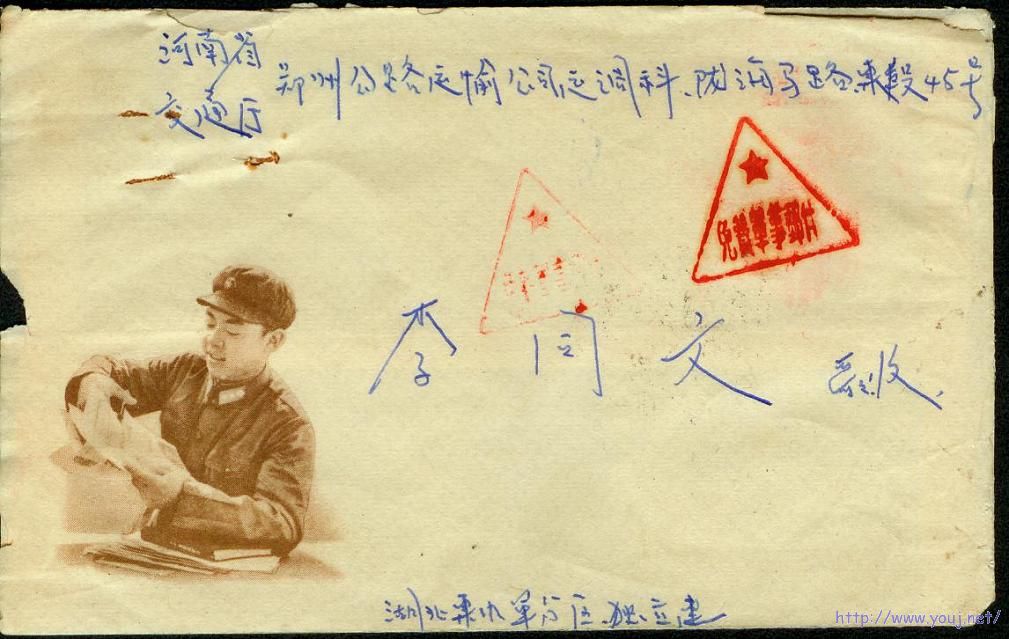 河南省
交通厅
郑州公路运愉公司运调科、陇海马路东段45号
免費軍事郵件
李同文 收
湖北 军分区独立连
http://www.youj.net/